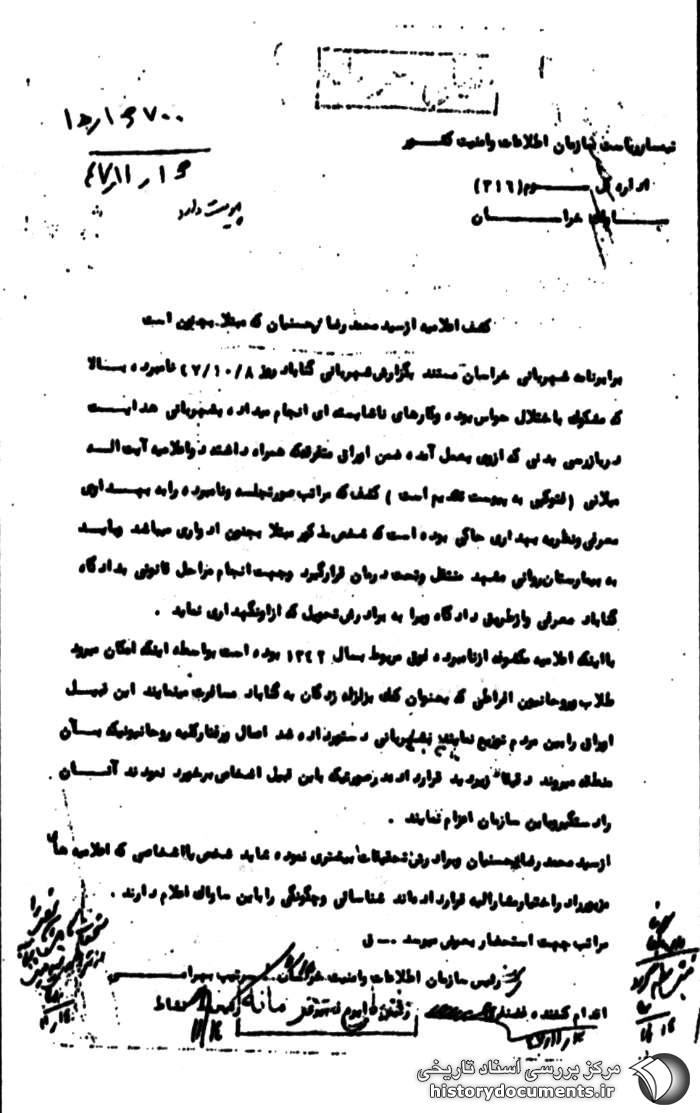 ۷۰۰ ۱۵/
تیمسار ریاست سازمان اطلاعات و امنیت کشور
اداره کل سوم (۳۱۶)
پیوست دارد
ساواک خراسان
کشف اعلامیه از سید محمد رضا محسنیان که مبتلا بجنون است
برابر نامه شهربانی خراسان مستند بگزارش شهربانی گناباد روز ۴۷/۱۰/۸ نامبرده بالا
که مشکوک با ختلال حواس بوده و کارهای ناشایسته ای انجام میداده بشهربانی هدایت
در بازرسی بدنی که از وی بعمل آمده ضمن اوراق متفرقه که همراه داشته دو اعلامیه آیت اله
میلانی (فتوکپی به پیوست تقدیم است) کشف که مراتب صورتجلسه و نامبرده را به بهداری
معرفی و نظریه بهداری حاکی بوده است که شخص مذکور مبتلا بجنون ادواری میباشد و باید
به بیمارستان روانی مشهد منتقل و تحت درمان قرار گیرد و جهت انجام مراحل قانونی بدادگاه
گناباد معرفی و از طریق دادگاه ویرا به برادرش تحویل که از او نگهداری نماید .
با اینکه اعلامیه مکشوفه از نامبرده فوق مربوط بسال ۱۳۴۲ بوده است بواسطه اینکه امکان میرود
طلاب و روحانیون افراطی که بعنوان کمک بزلزله زدگان به گناباد مسافرت مینمایند این قبیل
اوراق را بین مردم توزیع نمایند بشهربانی دستور داده شد اعمال و رفتار کلیه روحانیونیکه بآن
منطقه میروند دقیقا" زیر دید قرار داده در صورتیکه باین قبیل اشخاص برخورد نمودند آنان
را دستگیر و باین سازمان اعزام نمایند .
از سید محمد رضا محسنیان و برادرش تحقیقات بیشتری نموده شاید شخص یا اشخاصی که اعلامیه های
مزبور را در اختیار مشارالیه قرار داده اند شناسائی و چگونگی را باین ساواک اعلام دارند .
مراتب جهت استحضار بعرض میرسد --- ق
رئیس سازمان اطلاعات و امنیت خراسان . سرتیپ بهرامی
اقدام کننده
مرکز بررسی اسناد تاریخی
historydocuments.ir